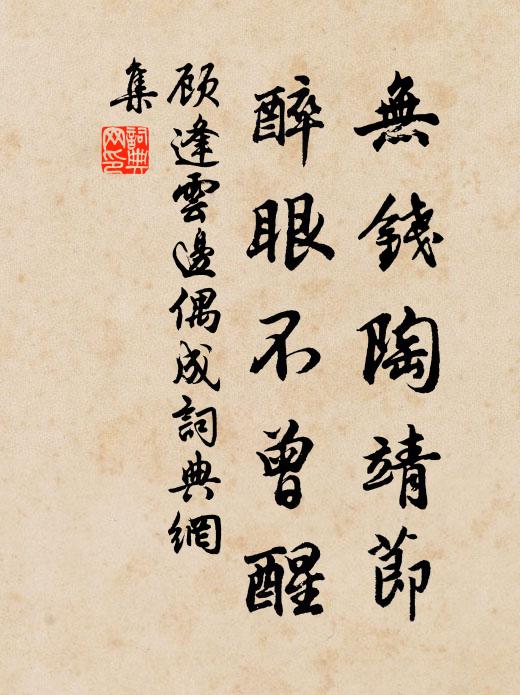 無錢陶靖節
醉眼不曾醒
顾逢雲邊偶成詞典網
集
詞典
网印